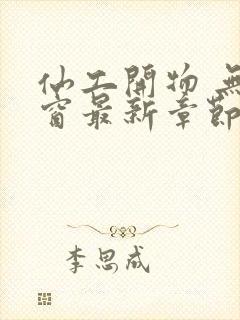 仙工開物 無
窗最新章節
李思成